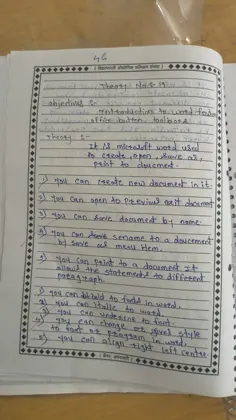 46
Theory No: 19
objectives :-
Introduction to word
office button toolbar
Theory :-
It is microsoft word used
to create, open, save as,
print to doucement.
1) you can create new document in it.
2) you can open to previous exit document
3) you can save document by name.
you can save rename to a doucement
by save as menu item.
5) you can print to a document It
allows the statements to different
paragraph.
1) you can bold to text in word.
2) you can Italic to word.
3) you can underline to font.
4) you can change or give style
to font or program in word.
5) you can align right left center